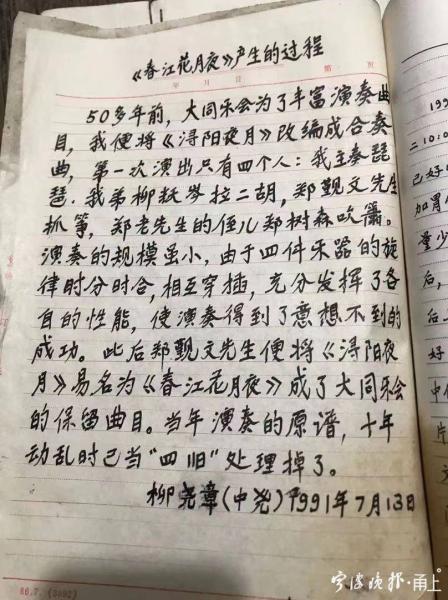 《春江花月夜》产生的过程
年 月 日
第 页
50多年前，大同乐会为了丰富演奏曲
目，我便将《浔阳夜月》改编成合奏
曲，第一次演出只有四个人：我主奏琵
琶．我弟柳尧岑拉二胡，郑觐文先生
抓筝，郑老先生的侄儿郑树森吹箫。
演奏的规模虽小，由于四件乐器的旋
律时分时合，相互穿插，充分发挥了各
自的性能，使演奏得到了意想不到的
成功。此后郑觐文先生便将《浔阳夜
月》易名为《春江花月夜》成了大同乐会
的保留曲目。当年演奏的原谱，十年
动乱时已当“四旧”处理掉了。
柳尧章(中尧)1991年7月13日
86.7.(3892)
199
二10:0
己好
加胃
量少
后，
后，
好
中
片
宁波晚报·甬上。